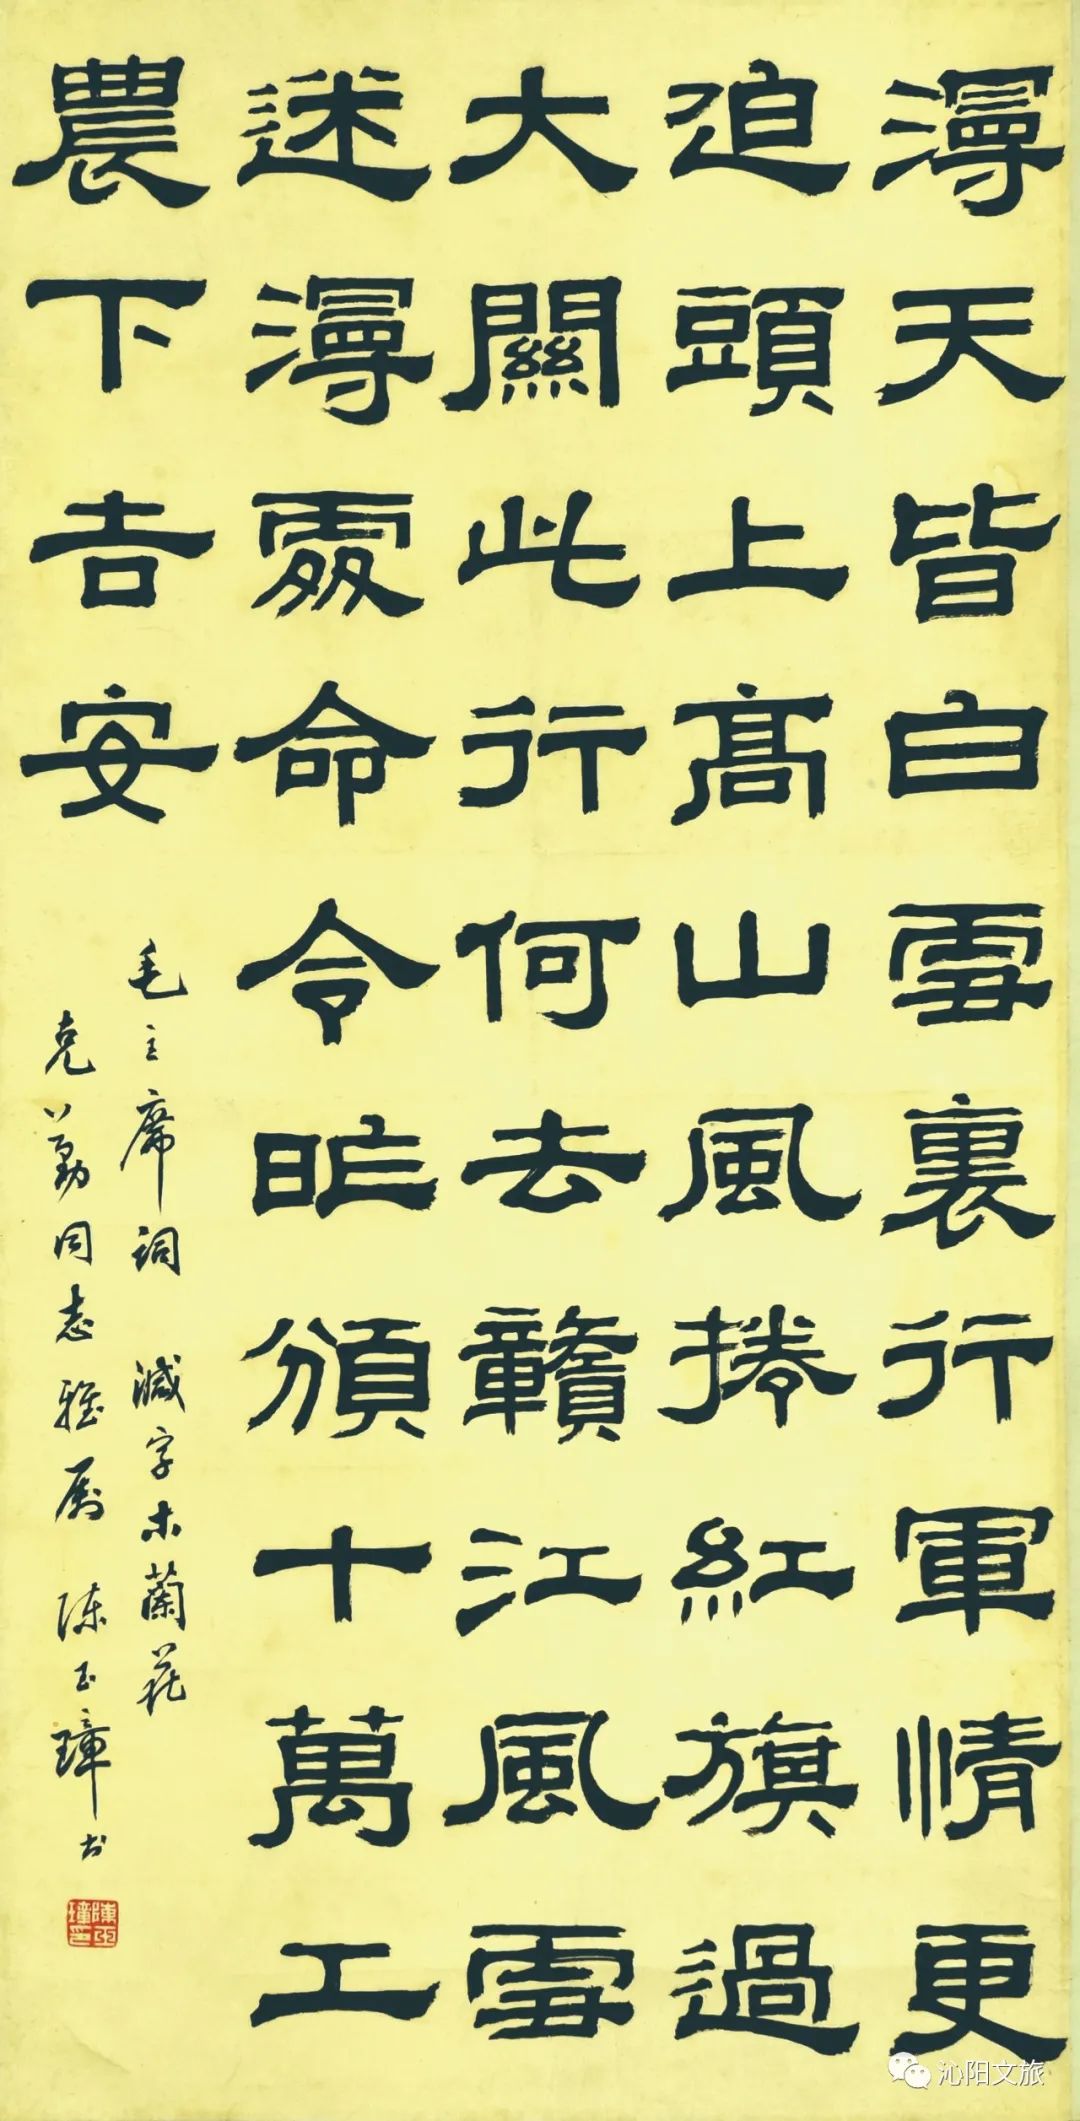 漫天皆白雪裏行軍情更
迫頭上高山風捲紅旗過
大關此行何去贛江風雪
迷漫處命令昨頒十萬工
農下吉安
毛主席詞 減字木蘭花
克勤同志雅屬 陈玉璋书
沁阳文旅